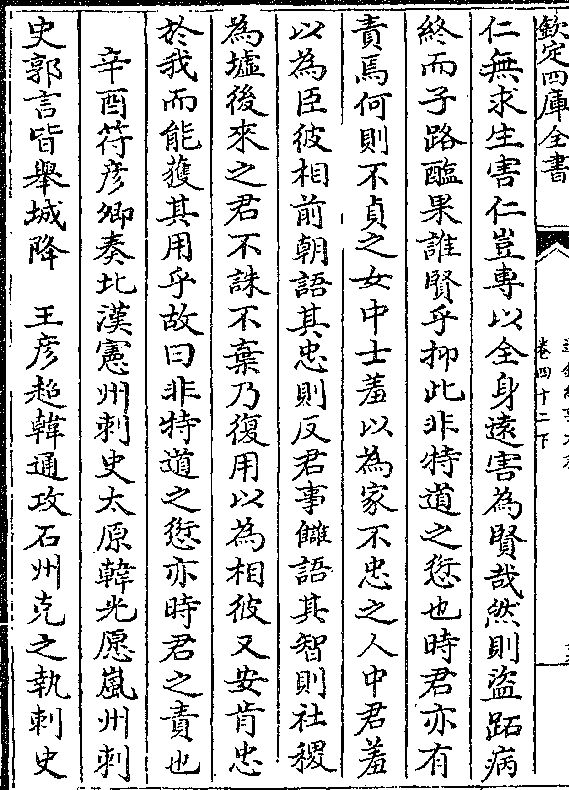 欽定四庫全書
卷四十二下
仁無求生害仁豈專以全身遠害為賢哉然則盜跖病
終而子路醢果誰賢乎抑此非特道之愆也時君亦有
責焉何則不貞之女中士羞以為家不忠之人中君羞
以為臣彼相前朝語其忠則反君事讎語其智則社稷
為墟後來之君不誅不棄乃復用以為相彼又安肯忠
於我而能獲其用乎故曰非特道之愆亦時君之責也
辛酉符彥卿奏北漢憲州刺史太原韓光愿嵐州刺
史郭言皆舉城降　王彥超韓通攻石州克之執刺史